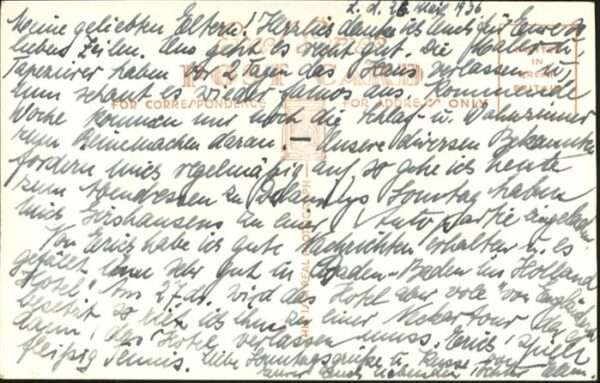 L. d. 26 Mai 1936
Meine geliebten Eltern! Herzlich danke ich Euch für Eure so
lieben Zeilen. Uns geht es recht gut. Die Maler u.
Tapezierer haben vor 2 Tagen das Haus verlassen u.
nun schaut es wieder famos aus. Kommende
POST CARD
FOR CORRESPONDENCE FOR ADDRESS ONLY
Woche kommen nur noch die Schlaf- u. Wohnzimmer
zum Reinemachen daran. Unsere diversen Bekannten
fordern mich regelmäßig auf so gehe ich heute
zum Abendessen zu Sonntag haben
mich Hirshausens zu einer Autopartie eingeladen
Von Erich habe ich gute Nachrichten erhalten u. es
gefällt ihm sehr gut in Baden-Baden im Holland
Hotel". Am 27. ds. wird das Hotel aber voll von Engländern
besetzt so ich ihm zu einer Neckartour da er
dann das Hotel verlassen muss. Erich spielt
fleißig Tennis. Liebe Sonntagsgrüße u. Küsse von
Eurer Euch liebenden